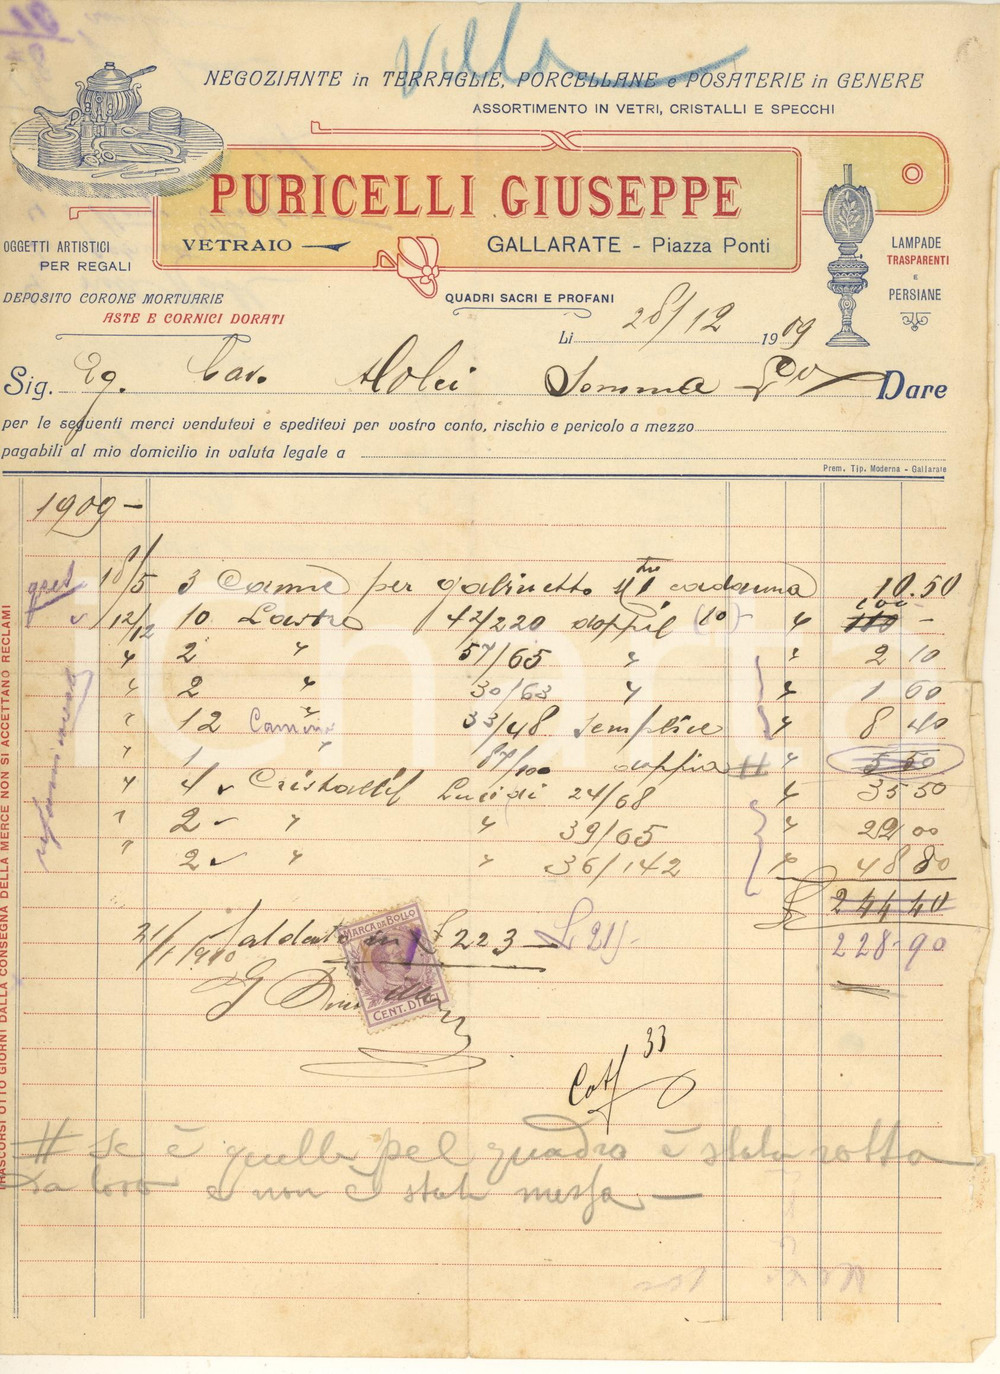 Villa
NEGOZIANTE in TERRAGLIE, PORCELLANE e POSATERIE in GENERE
ASSORTIMENTO IN VETRI, CRISTALLI E SPECCHI
PURICELLI GIUSEPPE
VETRAIO
GALLARATE - Piazza Ponti
OGGETTI ARTISTICI
PER REGALI
DEPOSITO CORONE MORTUARIE
ASTE E CORNICI DORATI
QUADRI SACRI E PROFANI
LAMPADE
TRASPARENTI
E
PERSIANE
Li 28/12 1909
Sig. Eg. Cav. Somma Dare
per le seguenti merci vendutevi e speditevi per vostro conto, rischio e pericolo a mezzo
pagabili al mio domicilio in valuta legale a
Prem. Tip. Moderna - Gallarate
1909 -
18/5 3 Canne per gabinetto cadauna 10.50
12/12 10 Lastre 42/220 (10) 100 -
" 2 " 57/65 " " 2 10
" 2 " 30/63 " " 1 60
" 12 " 33/48 semplice " 8 40
" 1 " 87/100 doppia # " 5 50
" 4 Cristalli Lucidi 24/68 " 35 50
" 2 " " 39/65 " 22 00
" 2 " " 36/142 " 48 80
244 40
228.90
31/1 1910 Saldato in £ 223 £ 215
MARCA DA BOLLO
CENT. DIECI
33
# se è quella pel quadro è stata rotta
da loro e non è stata messa -
TRASCORSI OTTO GIORNI DALLA CONSEGNA DELLA MERCE NON SI ACCETTANO RECLAMI
iCharta